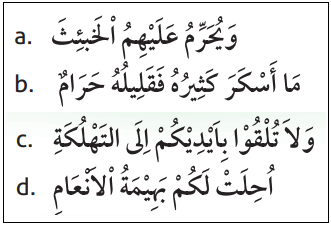 a. وَيُحَرِّمُ عَلَيْهِمُ اْلخَبٰئِثَ
b. مَا أَسْكَرَ كَثِيْرُهُ فَقَلِيلُهُ حَرَامٌ
c. وَلاَ تُلْقُوْا بِاَيْدِيْكُمْ اِلَى التَهْلُكَةِ
d. اُحِلَتْ لَكُمْ بَهِيْمَةُ اْلاَنْعَامِ